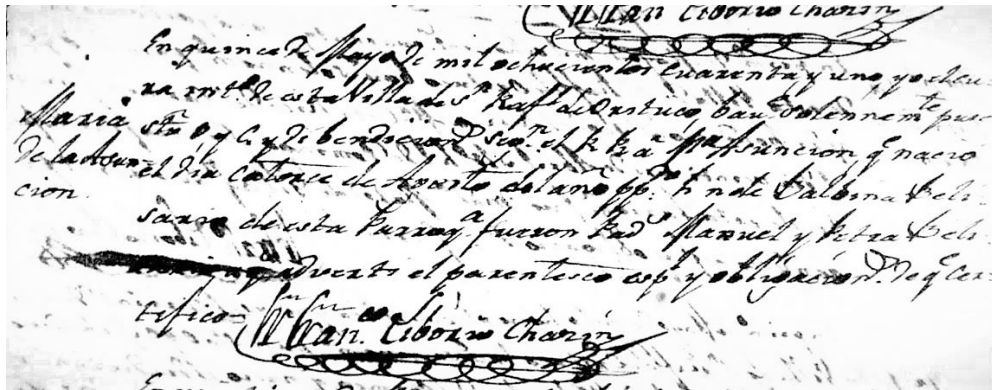 Fran Ciborio Charin
En quince de Mayo de mil ochocientos cuarenta y uno yo el cu-
ra int.º de esta Villa de S.n Raf.l de Orituco, baut. solennem.te puse
Maria
de la Asun-
cion.
sto. O. y C. y di bendicion.s seg.n el R. R. á M.a Asuncion q.e nació
el dia catorce de Agosto del año pp.do h. n. de Balbina Beli-
sario de esta Parroq.a fueron Pad.s Manuel y Petra Beli-
sario advertí el parentesco esp.l y obligacion.s de q.e cer-
tifico=
Fran.co Ciborio Charin